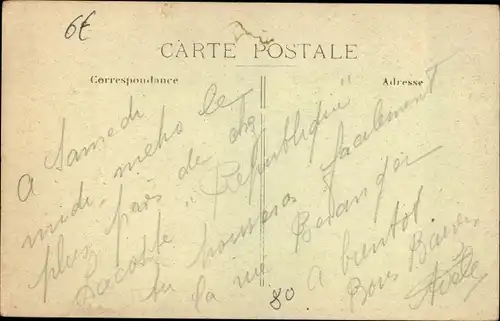 6€
CARTE POSTALE
Correspondance
Adresse
A Samedi
midi, metro le
plus près de chez
Lacoste "République"
tu trouveras facilement
la rue Béranger
à bientôt
Bons Baisers
80